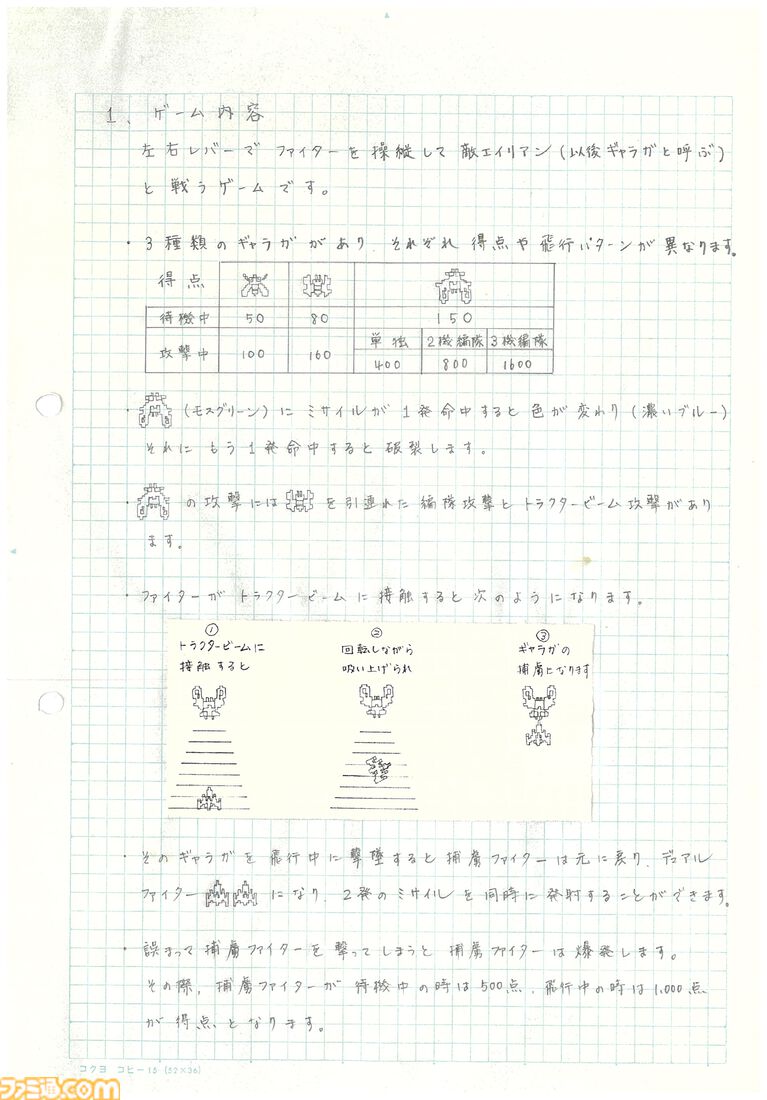 1、ゲーム内容
左右レバーでファイターを操縦して敵エイリアン(以後ギャラガと呼ぶ)
と戦うゲームです。
・3種類のギャラガがあり、それぞれ得点や飛行パターンが異なります。
得点
待機中 50 80 150
攻撃中 100 160 単独 2機編隊 3機編隊
400 800 1600
・(モスグリーン)にミサイルが1発命中すると色が変わり(濃いブルー)
それにもう1発命中すると破裂します。
・の攻撃にはを引連れた編隊攻撃とトラクタービーム攻撃があり
ます。
・ファイターがトラクタービームに接触すると次のようになります。
①
トラクタービームに
接触すると
②
回転しながら
吸い上げられ
③
ギャラガの
捕虜になります
・そのギャラガを飛行中に撃墜すると捕虜ファイターは元に戻り、デュアル
ファイターになり、2発のミサイルを同時に発射することができます。
・誤まって捕虜ファイターを撃ってしまうと捕虜ファイターは爆発します。
その際、捕虜ファイターが待機中の時は500点、飛行中の時は1,000点
が得点となります。
コクヨ コヒー15 (52×36)
ファミ通.com